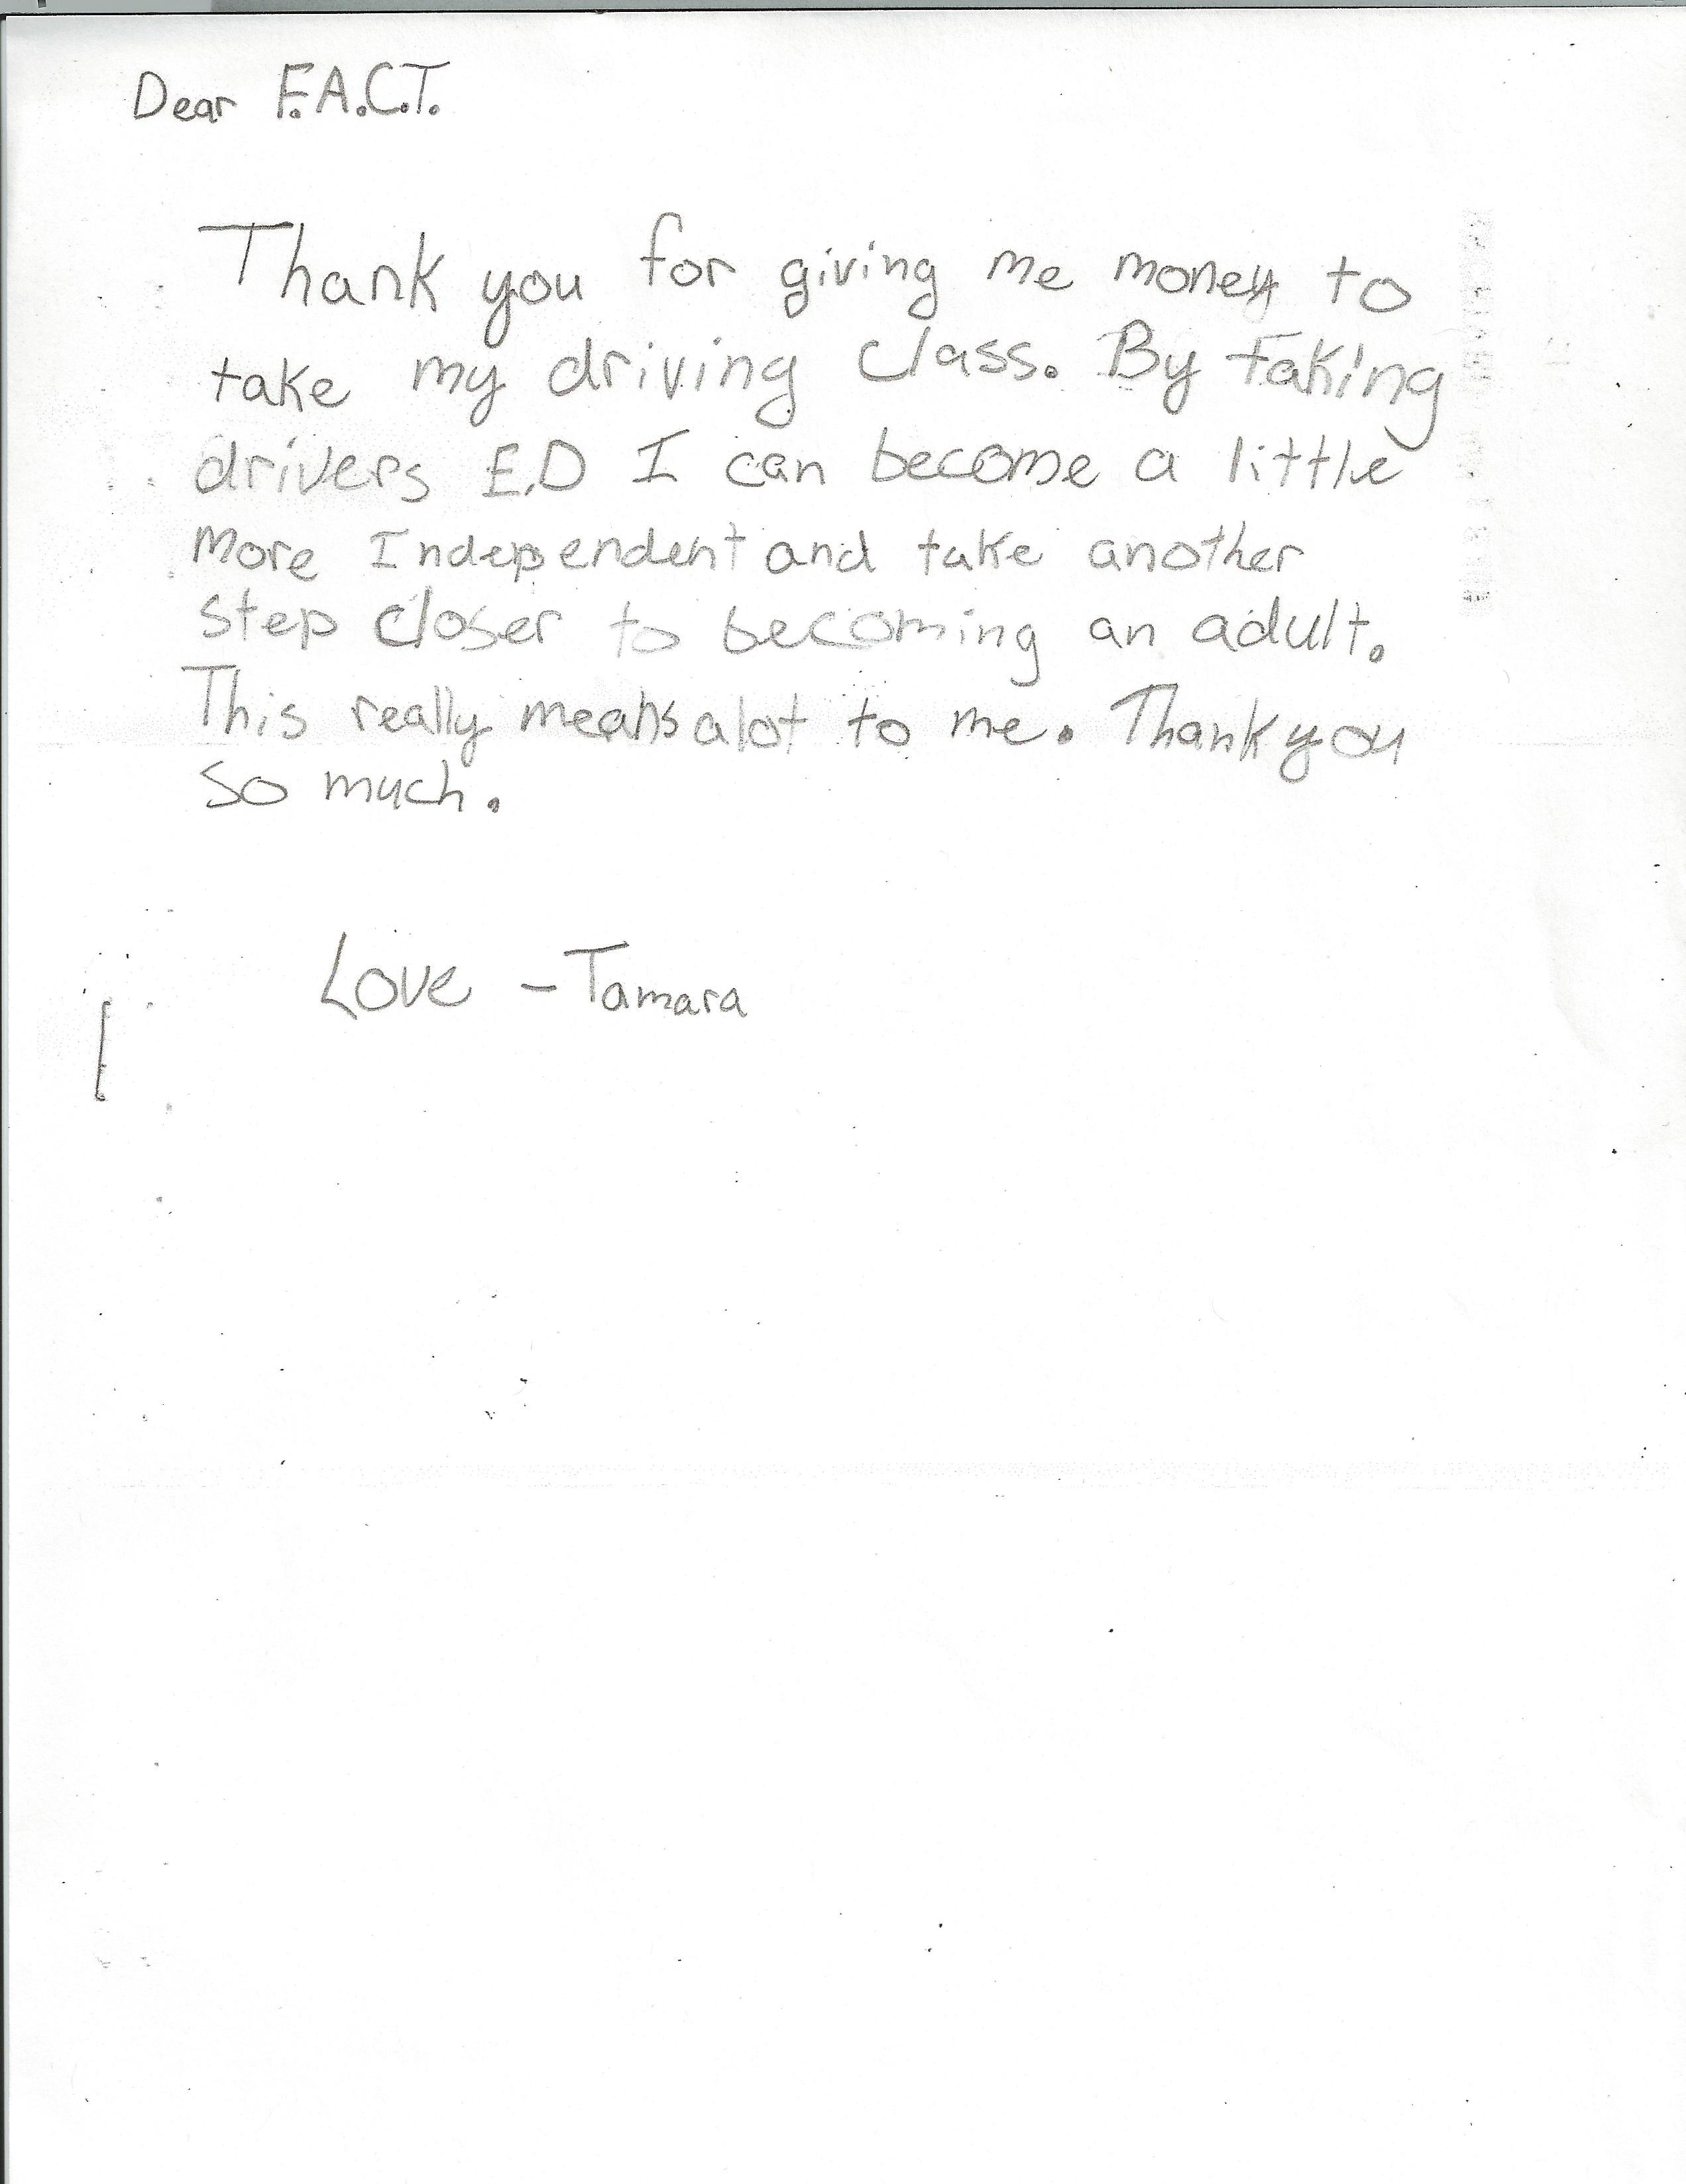 Dear F.A.C.T.
Thank you for giving me money to
take my driving class. By taking
drivers E.D I can become a little
more Independent and take another
step closer to becoming an adult.
This really means alot to me. Thank you
so much.
Love - Tamara